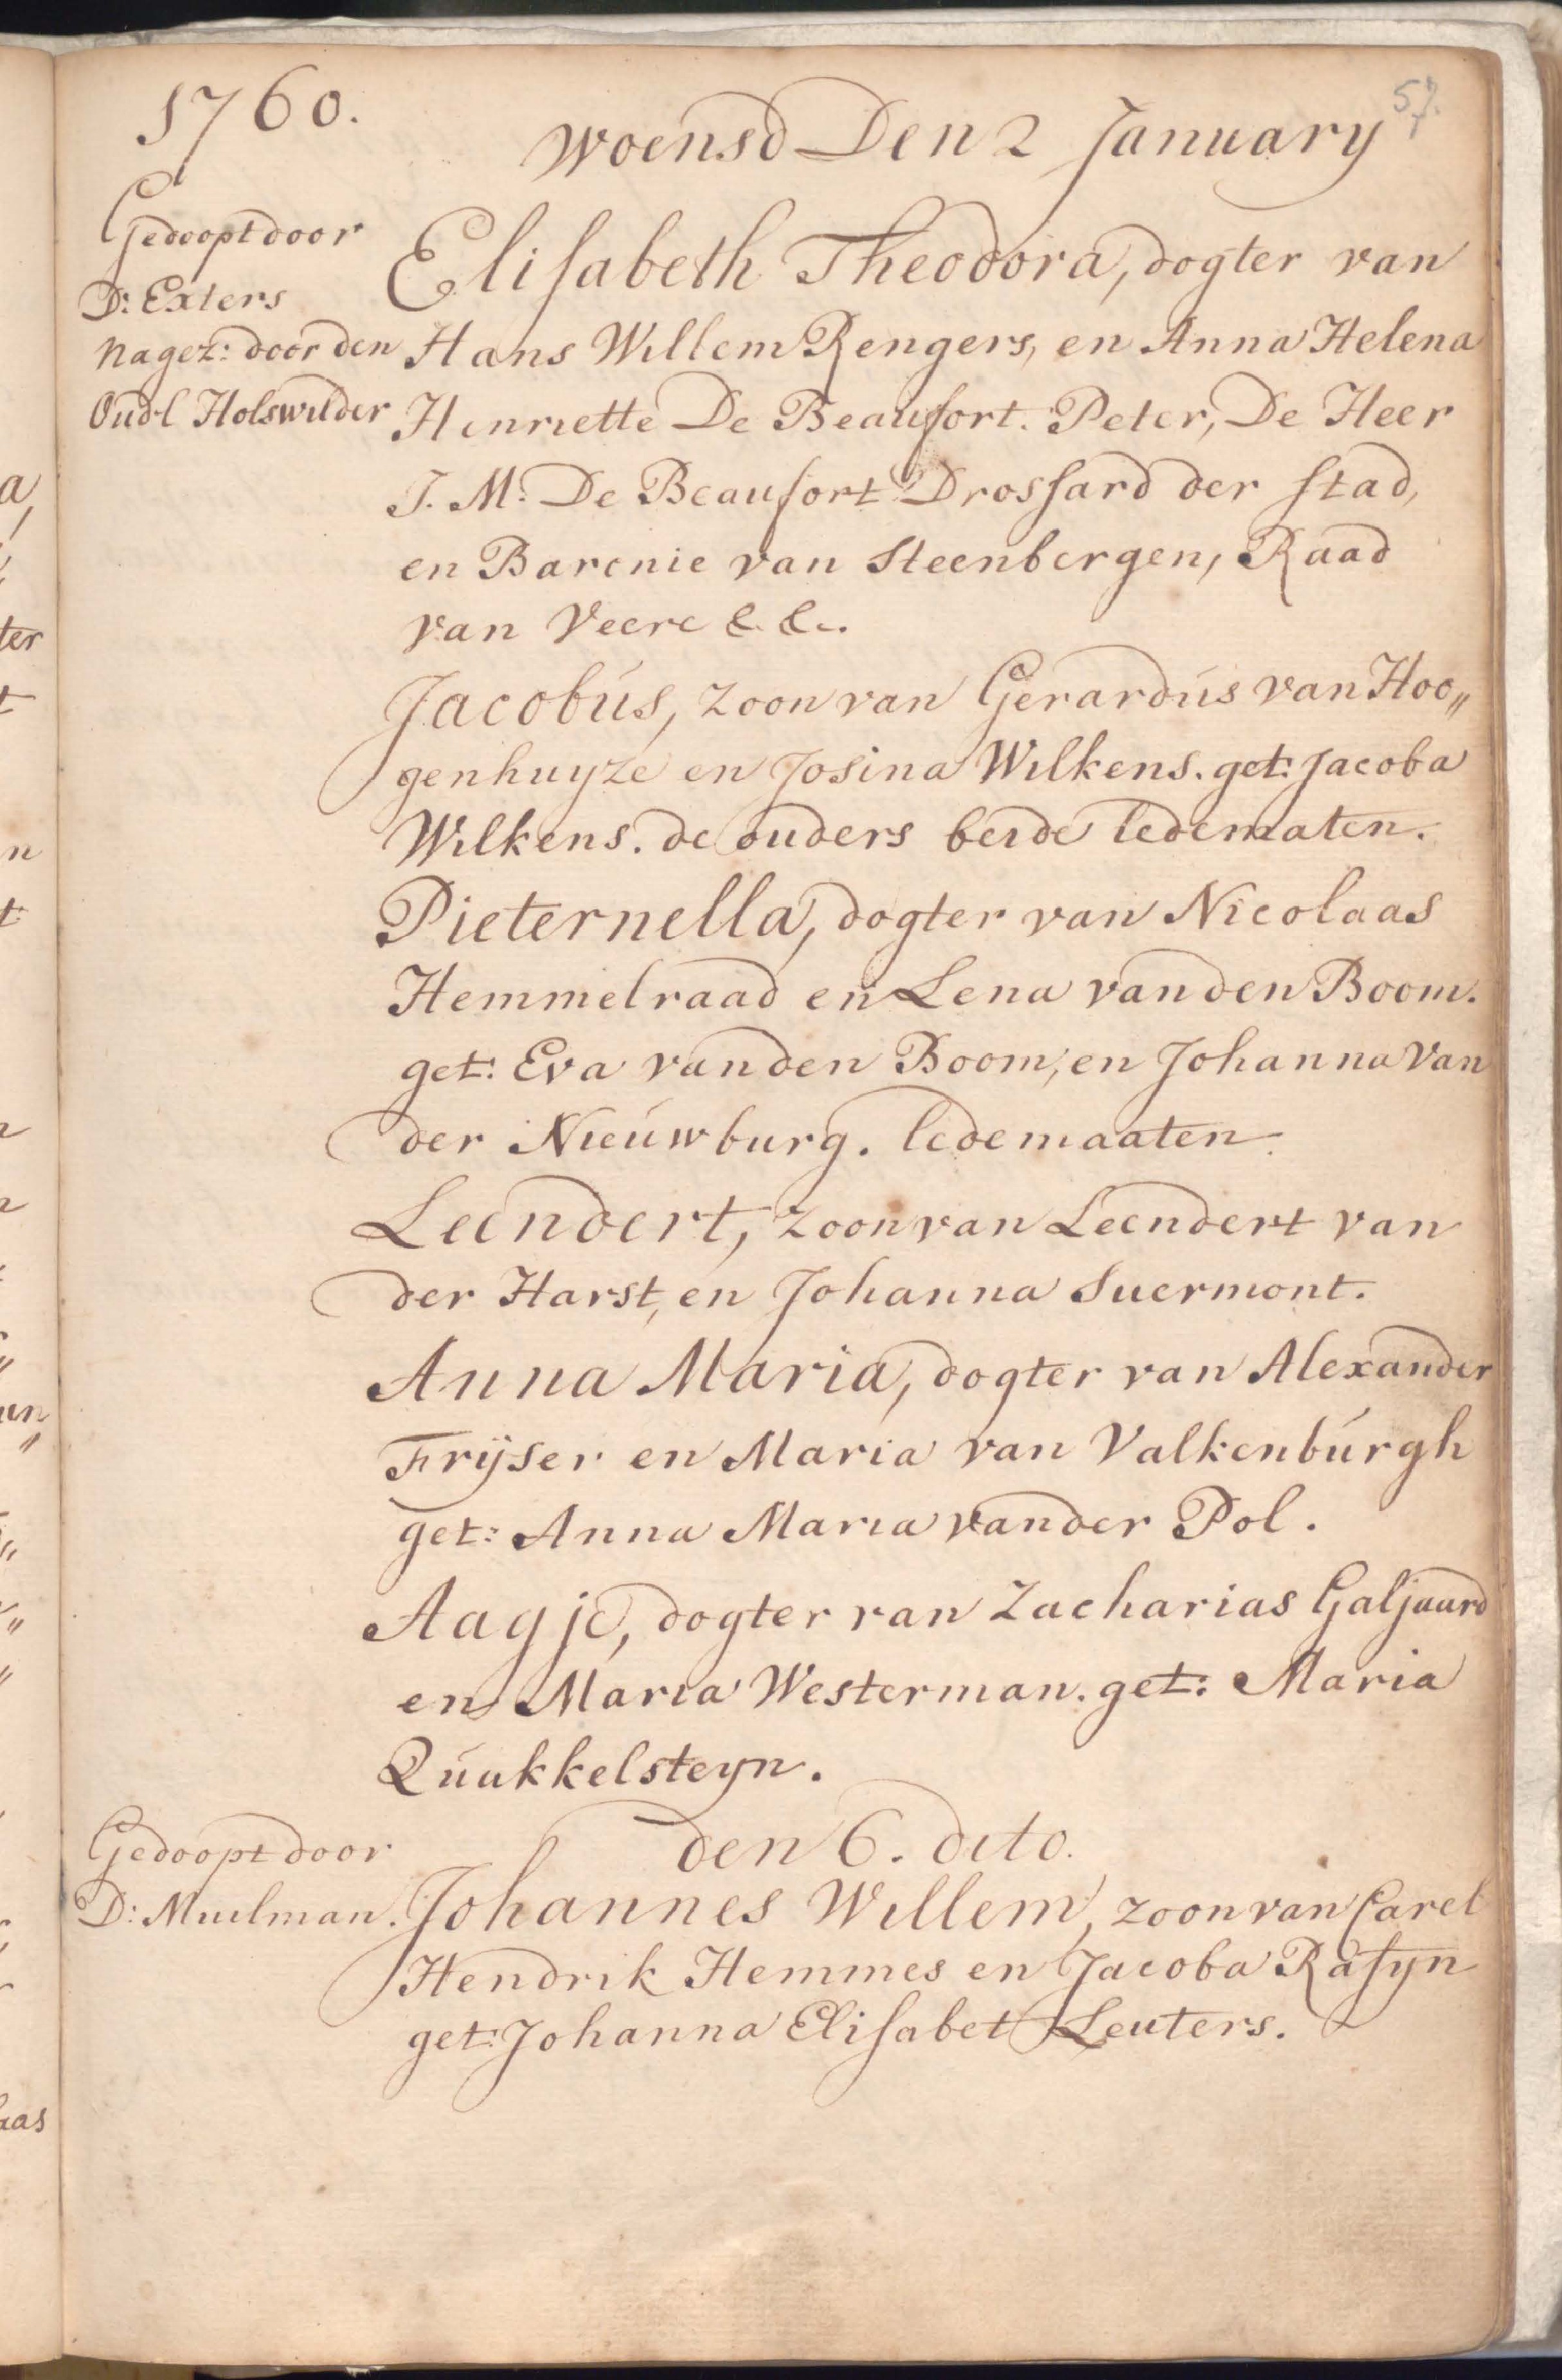 1760.
57.
Woensd Den 2 January
Gedoopt door
Ds: Exters
Nagez: door den
Oudl Holswilder
Elisabeth Theodora, dogter van
Hans Willem Rengers, en Anna Helena
Henriette De Beaufort. Peter, De Heer
J. M. De Beaufort Drossard der stad,
en Baronie van Steenbergen, Raad
van Veere &. &c.
Jacobus, zoon van Gerardus van Hoo„
genhuyze en Josina Wilkens. get: Jacoba
Wilkens. de ouders beide ledematen.
Pieternella, dogter van Nicolaas
Hemmelraad en Lena van den Boom.
get: Eva van den Boom, en Johanna Van
der Nieuwburg. ledemaaten.
Leendert, zoon van Leendert van
der Harst, en Johanna Suermont.
Anna Maria, dogter van Alexander
Frijser en Maria van Valkenburgh
get: Anna Maria van der Pol.
Aagje, dogter van Zacharias Galjaard
en Maria Westerman. get: Maria
Quakkelsteyn.
den 6. dito.
Gedoopt door
D: Muilman.
Johannes Willem, zoon van Carel
Hendrik Hemmes en Jacoba Rasyn
get: Johanna Elisabet Leuters.